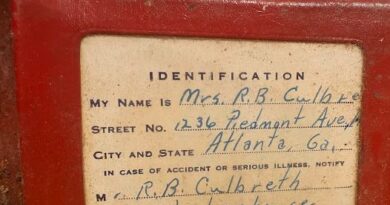 IDENTIFICATION
MY NAME IS Mrs. R.B. Culbre
STREET NO. 1236 Piedmont Ave,
CITY AND STATE Atlanta, Ga.
IN CASE OF ACCIDENT OR SERIOUS ILLNESS, NOTIFY
M R.B. Culbreth